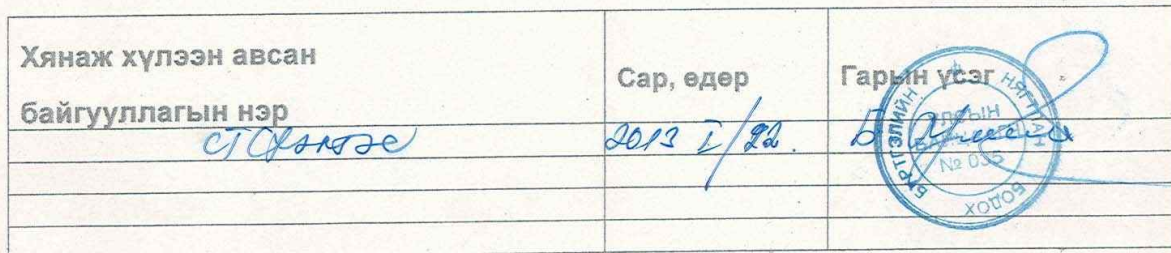 Хянаж хүлээн авсан
байгууллагын нэр
Сар, өдөр
Гарын үсэг
2013 I/22.
Б
БҮРТГЭЛИЙН НЯГТЛАН БОДОХ
УЛСЫН
№ 035